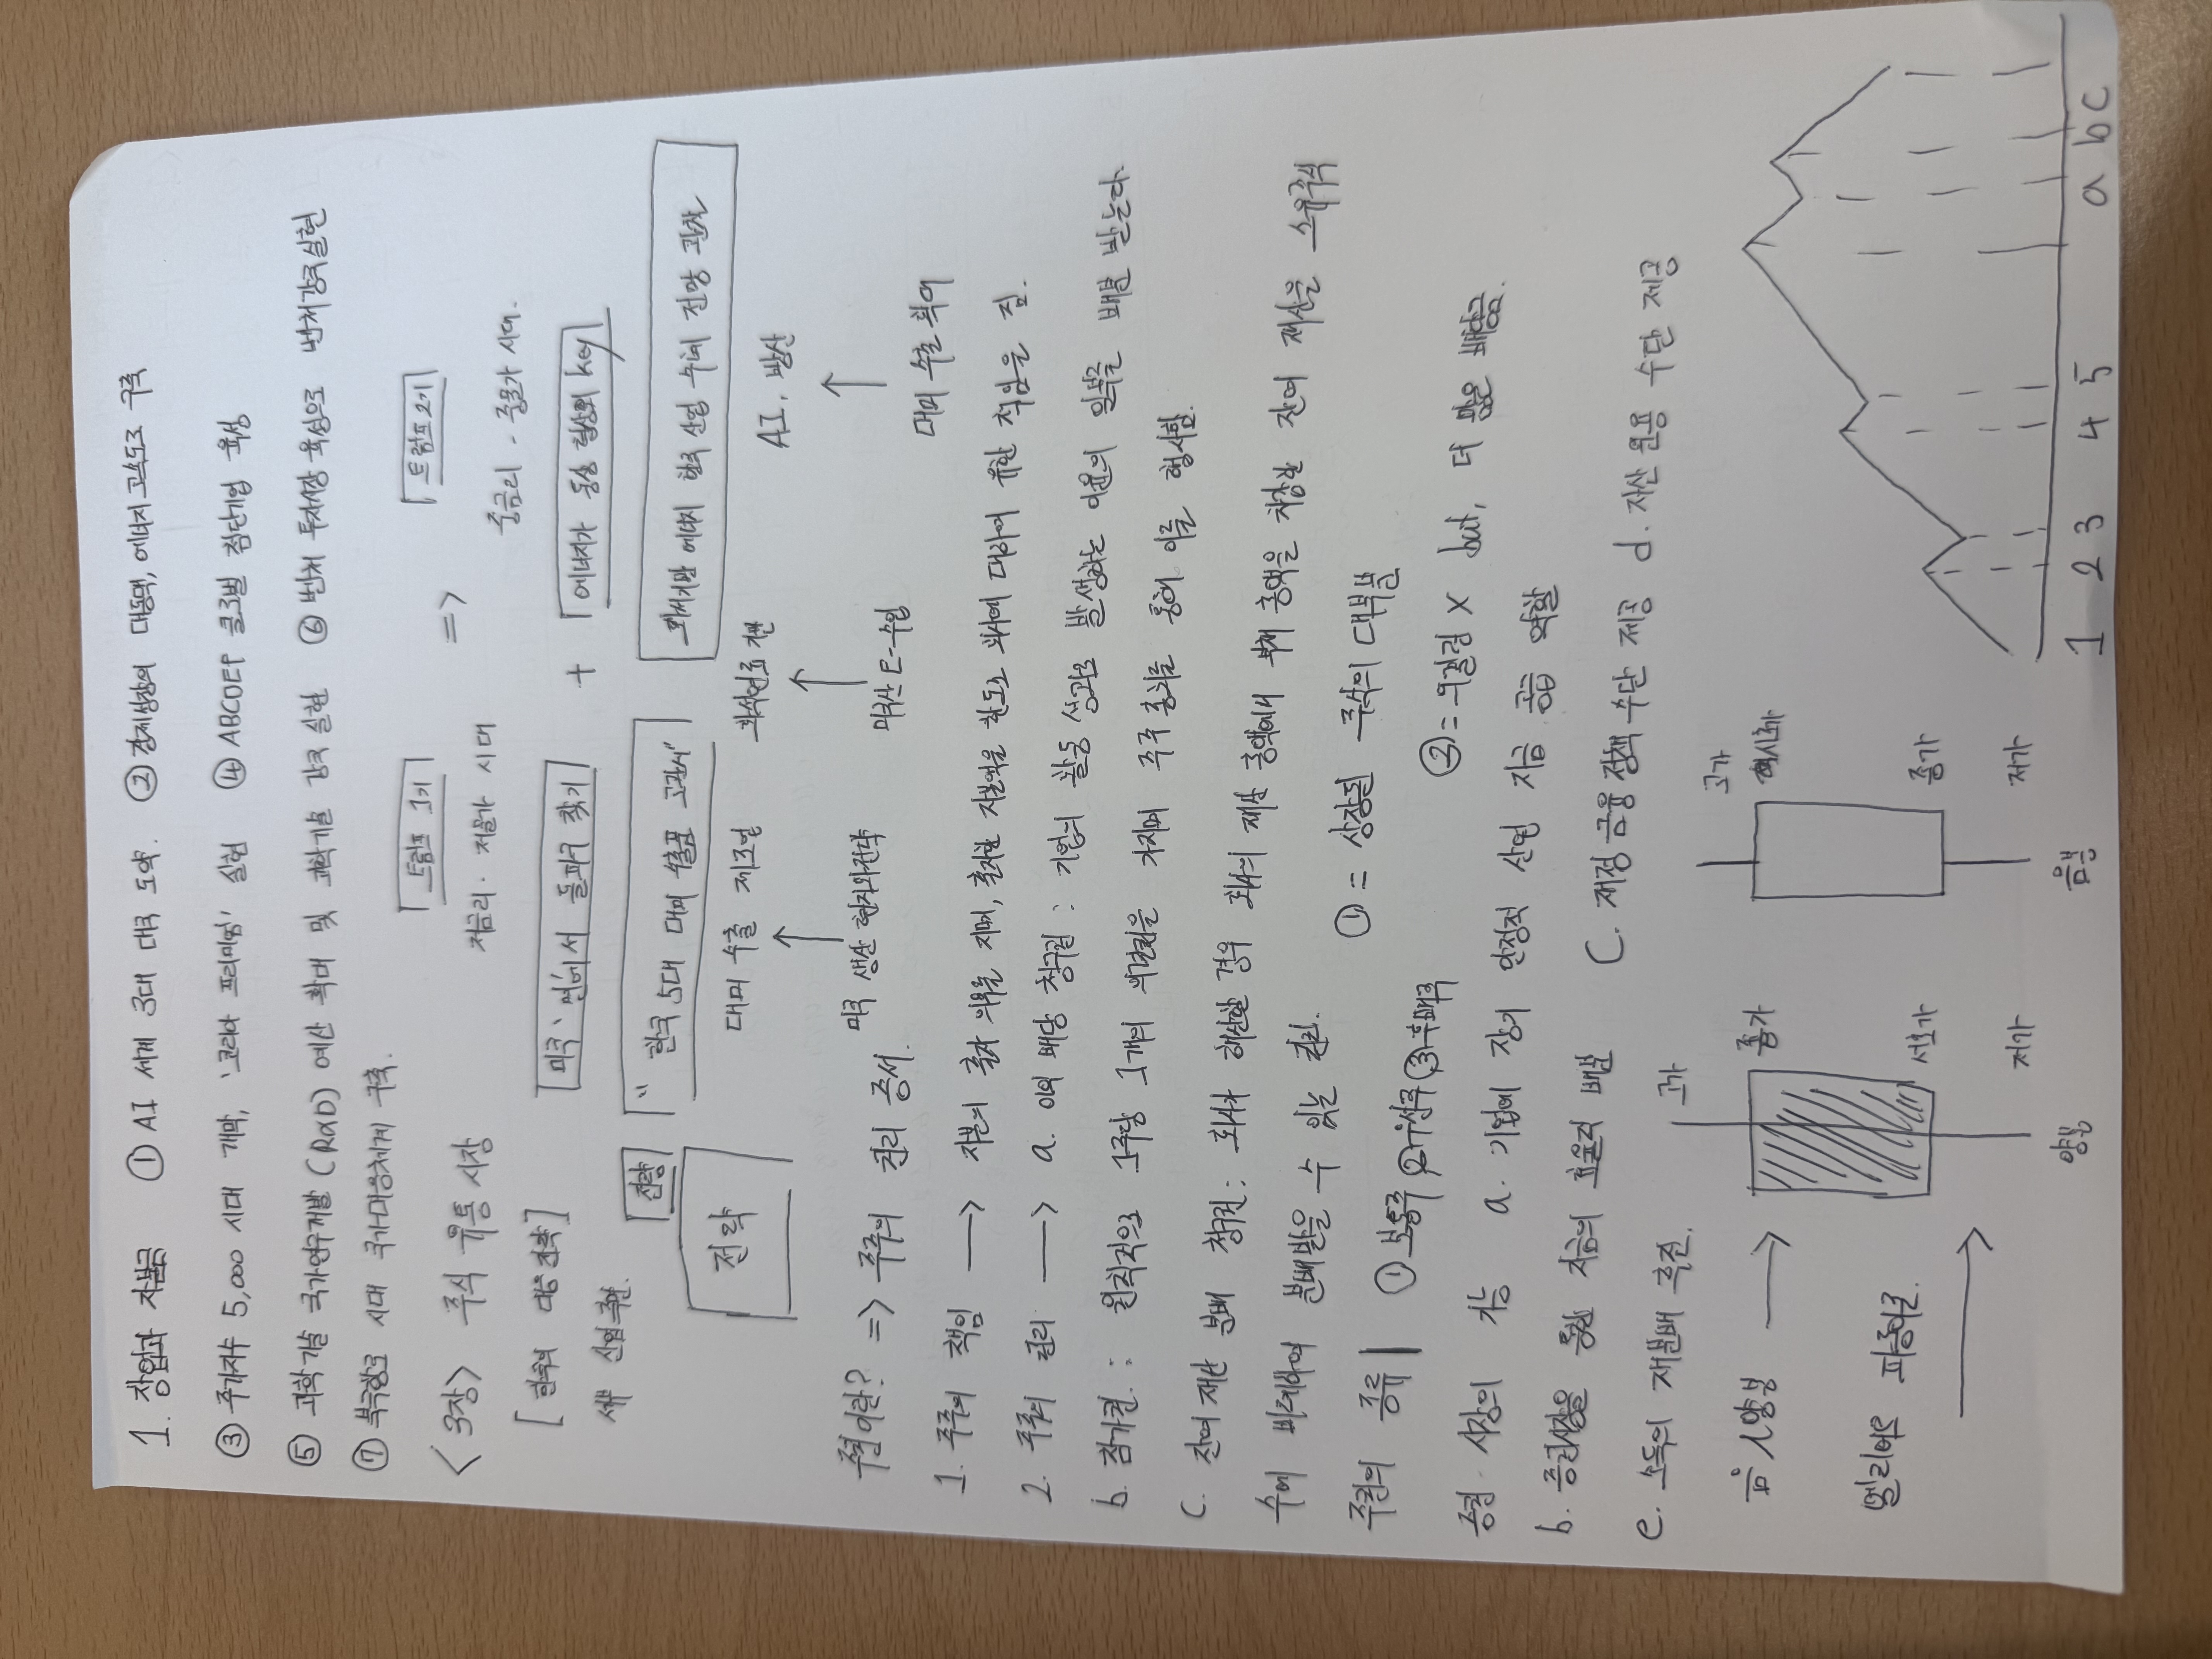 1. 창업과 자본금 ① AI 세계 3대 대국 도약. ② 경제성장의 대동맥, 에너지 고속도로 구축
③ 주가지수 5,000 시대 개막, '코리아 프리미엄' 실현 ④ ABCDEF 글로벌 첨단기업 육성
⑤ 과학기술 국가연구개발 (R&D) 예산 확대 및 과학기술 강국 실현 ⑥ 벤처 투자시장 육성으로 벤처강국실현
⑦ 북극항로 시대 국가대응체계 구축.
<3장> 주식 유통 시장
트럼프 1기 => 트럼프 2기
저금리. 저물가 시대 중금리. 중물가 시대.
[한국의 대응 전략] 미국 '편'에서 돌파구 찾기 + 에너지가 통상 협상의 key
세 산업 축 전략 "한국 5대 대미 수출품 고관세" 화석개발 에너지 한국 산업 수혜 전망 관찰
전략 대미 수출 제조업 화석연료 개발 AI, 방산
미국 생산 현지화전략 미국산 E-수입 대미 수출 확대
주권이란? => 주주의 권리 증서.
1. 주주의 책임 → 자본의 출자 의무를 지며, 출자한 자본액을 한도로 회사에 대하여 유한 책임을 짐.
2. 주주의 권리 → a. 이익 배당 청구권 : 기업의 활동 성과로 발생하는 이윤의 일부를 배분 받는다.
b. 참가권 : 원칙적으로 1주당 1개의 의결권을 가지며 주주 총회를 통해 이를 행사함.
c. 잔여 재산 분배 청구권 : 회사가 해산할 경우 회사의 재산 총액에서 부채 총액을 차감한 잔여 재산을 소유주식
수에 비례하여 분배받을 수 있는 권리.
주권의 종류 ① 보통주 ② 우선주 ③ 후배주 ① = 상장된 주식의 대부분
② = 의결권 X but, 더 많은 배당금.
증권 시장의 기능 a. 기업에 장기 안정적 산업 자금 공급 역할
b. 증권시장을 통한 자금의 효율적 배분 C. 재정 금융 정책 수단 제공 d. 자산 운용 수단 제공
e. 소득의 재분배 촉진.
음/양봉 →
고가 종가 시초가 저가 양봉
고가 시초가 종가 저가 음봉
엘리어트 파동이론. →
1 2 3 4 5 a b c